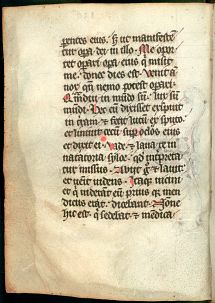 parentes eius. sed ut manifesten
tur opera dei in illo. Me opor
tet operari opera eius qui misit
me. donec dies est. Venit
nox qn nemo potest operari.
Qmdiu in mundo sum. lux sum
mundi. Hec cum dixisset expuit
in terram et fecit lutum ex sputo.
et liniuit lutum sup oculos eius
et dixit ei. Vade et laua te in
natatoria syloe. qd interpreta
tur missus. Abiit g et lauit.
et uenit uidens. Itaque uicini
et q uiderant eum prius quia men
dicus erat. dicebant. Nonne
hic est q sedebat et mendica